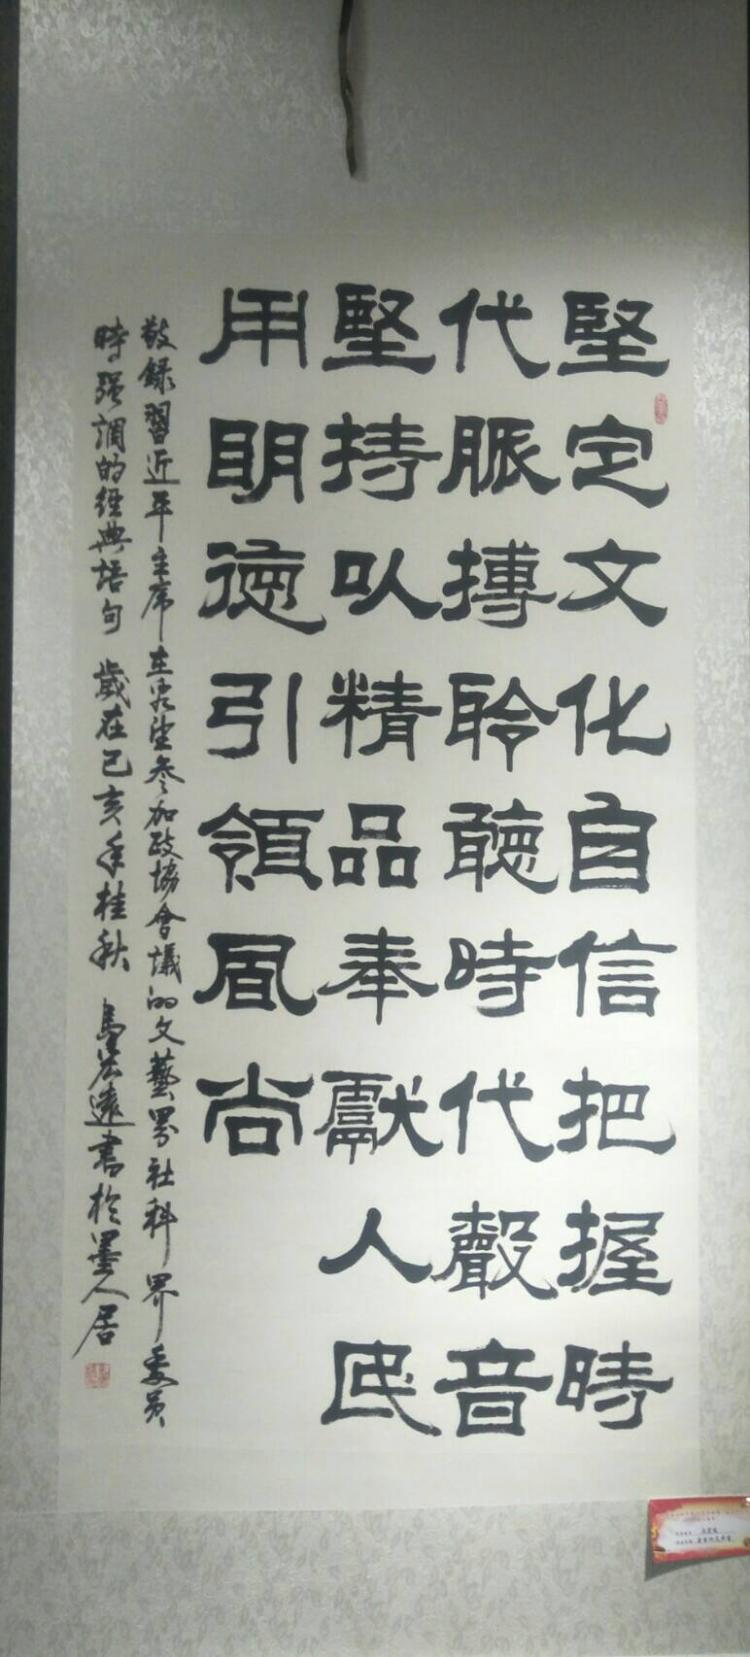 堅定文化自信把握時
代脈搏聆聽時代聲音
堅持以精品奉獻人民
用明德引領風尚
敬錄習近平主席在看望參加政協會議的文藝界社科界委員
時强調的經典語句 歲在己亥年桂秋 馬宏遠書於墨人居